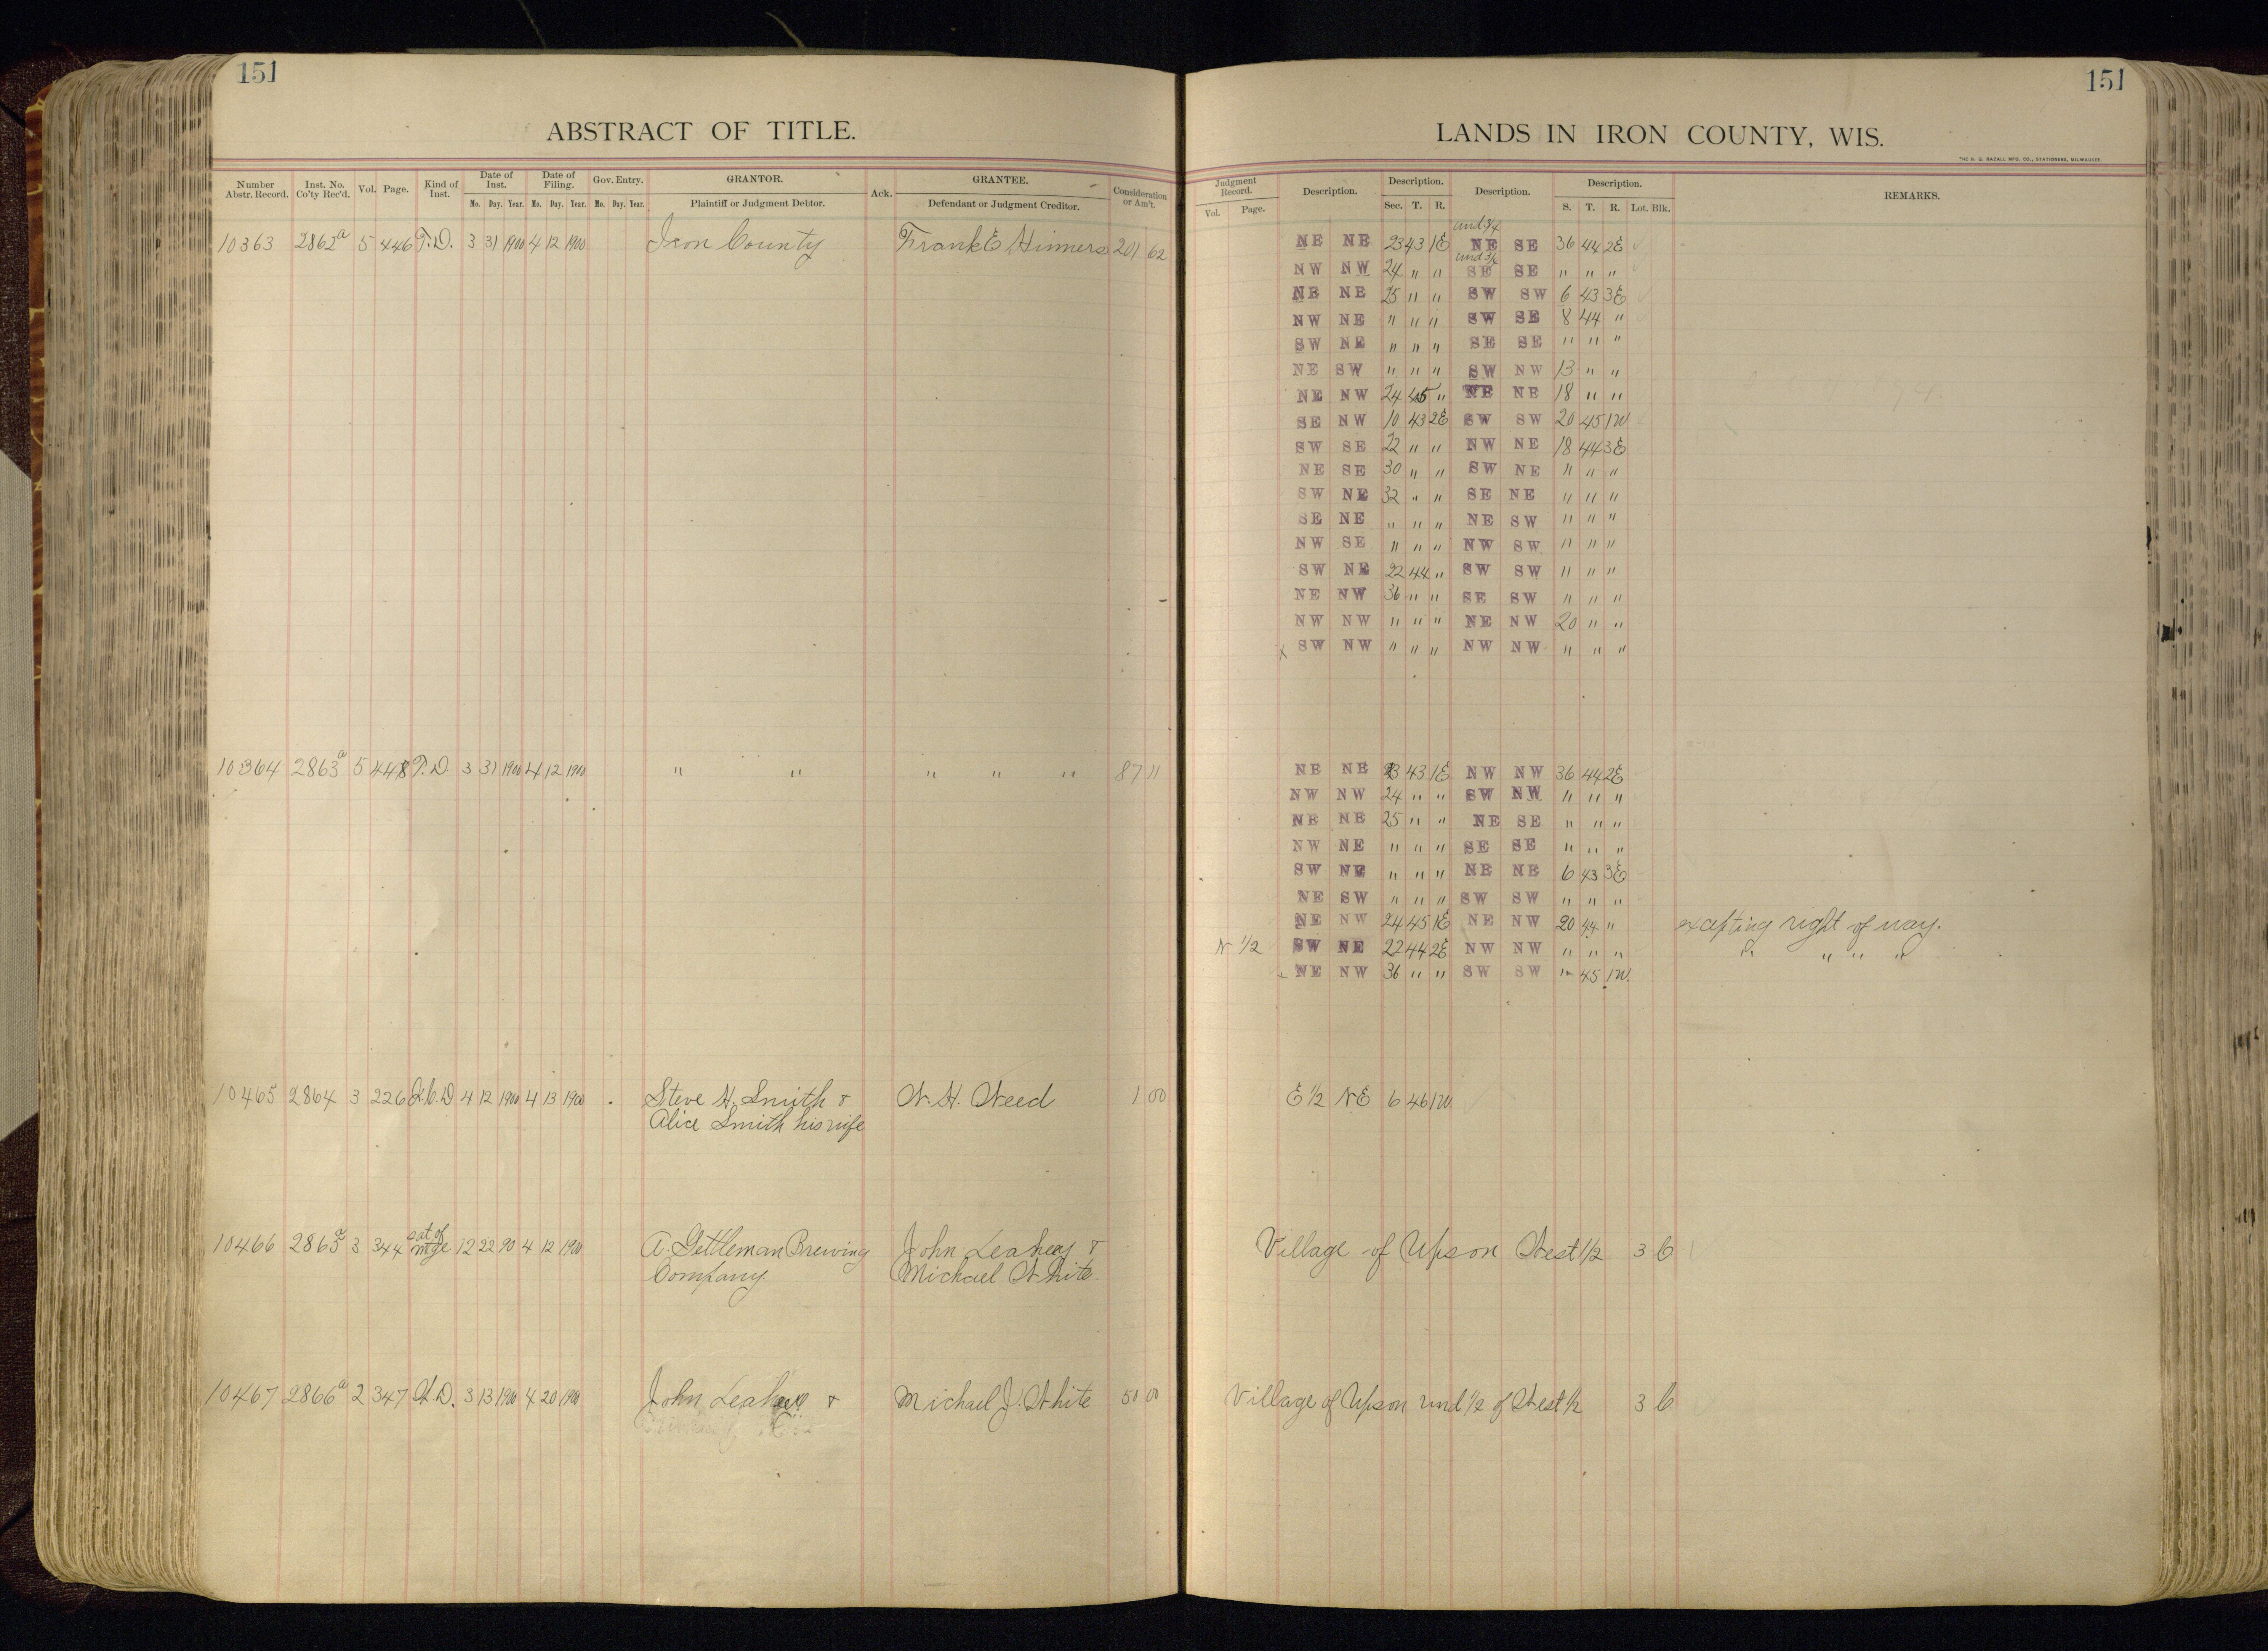 151
ABSTRACT OF TITLE.
Number Abstr. Record. Inst. No. Co'ty Rec'd. Vol. Page. Kind of Inst. Date of Inst. Mo. Day. Year. Date of Filing. Mo. Day. Year. Gov. Entry. Mo. Day. Year. GRANTOR. Plaintiff or Judgment Debtor. Ack. GRANTEE. Defendant or Judgment Creditor. Consideration or Am't.
10363 2862a 5 446 T.D. 3 31 1900 4 12 1900 Iron County Frank E Hinners 201 62
10364 2863a 5 448 T.D. 3 31 1900 4 12 1900 " " " " " 87 11
10465 2864 3 226 Q.C.D 4 12 1900 4 13 1900 Steve H. Smith & W. H. Weed 1 00
Alice Smith his wife
10466 2865a 3 344 sat of mtge 12 22 90 4 12 1900 A. Gettleman Brewing John Leahey &
Company Michael White.
10467 2866a 2 347 W.D. 3 13 1900 4 20 1900 John Leahey & Michael J. White 50 00
151
LANDS IN IRON COUNTY, WIS.
THE H. G. RAZALL MFG. CO., STATIONERS, MILWAUKEE.
Judgment Record. Vol. Page. Description. Description. Sec. T. R. Description. Description. S. T. R. Lot. Blk. REMARKS.
und 3/4
NE NE 23 43 1E NE SE 36 44 2E
und 3/4
NW NW 24 " " SE SE " " "
NE NE 25 " " SW SW 6 43 3E
NW NE " " " SW SE 8 44 "
SW NE " " " SE SE " " "
NE SW " " " SW NW 13 " "
NE NW 24 45 " NE NE 18 " "
SE NW 10 43 2E SW SW 20 45 1W
SW SE 22 " " NW NE 18 44 3E
NE SE 30 " " SW NE " " "
SW NE 32 " " SE NE " " "
SE NE " " " NE SW " " "
NW SE " " " NW SW " " "
SW NE 22 44 " SW SW " " "
NE NW 36 " " SE SW " " "
NW NW " " " NE NW 20 " "
x SW NW " " " NW NW " " "
NE NE 23 43 1E NW NW 36 44 2E
NW NW 24 " " SW NW " " "
NE NE 25 " " NE SE " " "
NW NE " " " SE SE " " "
SW NE " " " NE NE 6 43 3E
NE SW " " " SW SW " " "
NE NW 24 45 1E NE NW 20 44 " excepting right of way.
N 1/2 SW NE 22 44 2E NW NW " " " " " " "
NE NW 36 " " SW SW " 45 1W.
E 1/2 NE 6 46 1W.
Village of Upson West 1/2 3 6
Village of Upson und 1/2 of West 1/2 3 6